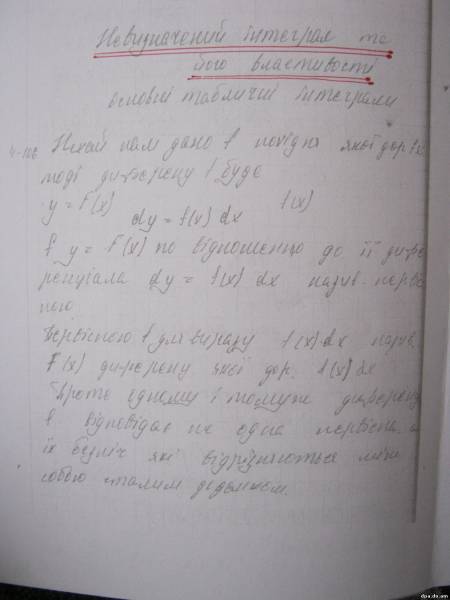 Невизначений інтеграл та
його властивості
основні табличні інтеграли
Нехай нам дано f похідна якої дор f(x)
тоді диферену f буде
y = F(x)
dy = f(x) dx f(x)
f y = F(x) по відношенню до її дифе
ренціала dy = f(x) dx назив. перві
ною
Первісною f для виразу f(x) dx назив.
F(x) диферену якої дор. f(x) dx
Проте одному і тому же диферену
f відповідає не одна первісна а
їх безліч які відрізняються між
собою сталим доданком.
dpa.do.am